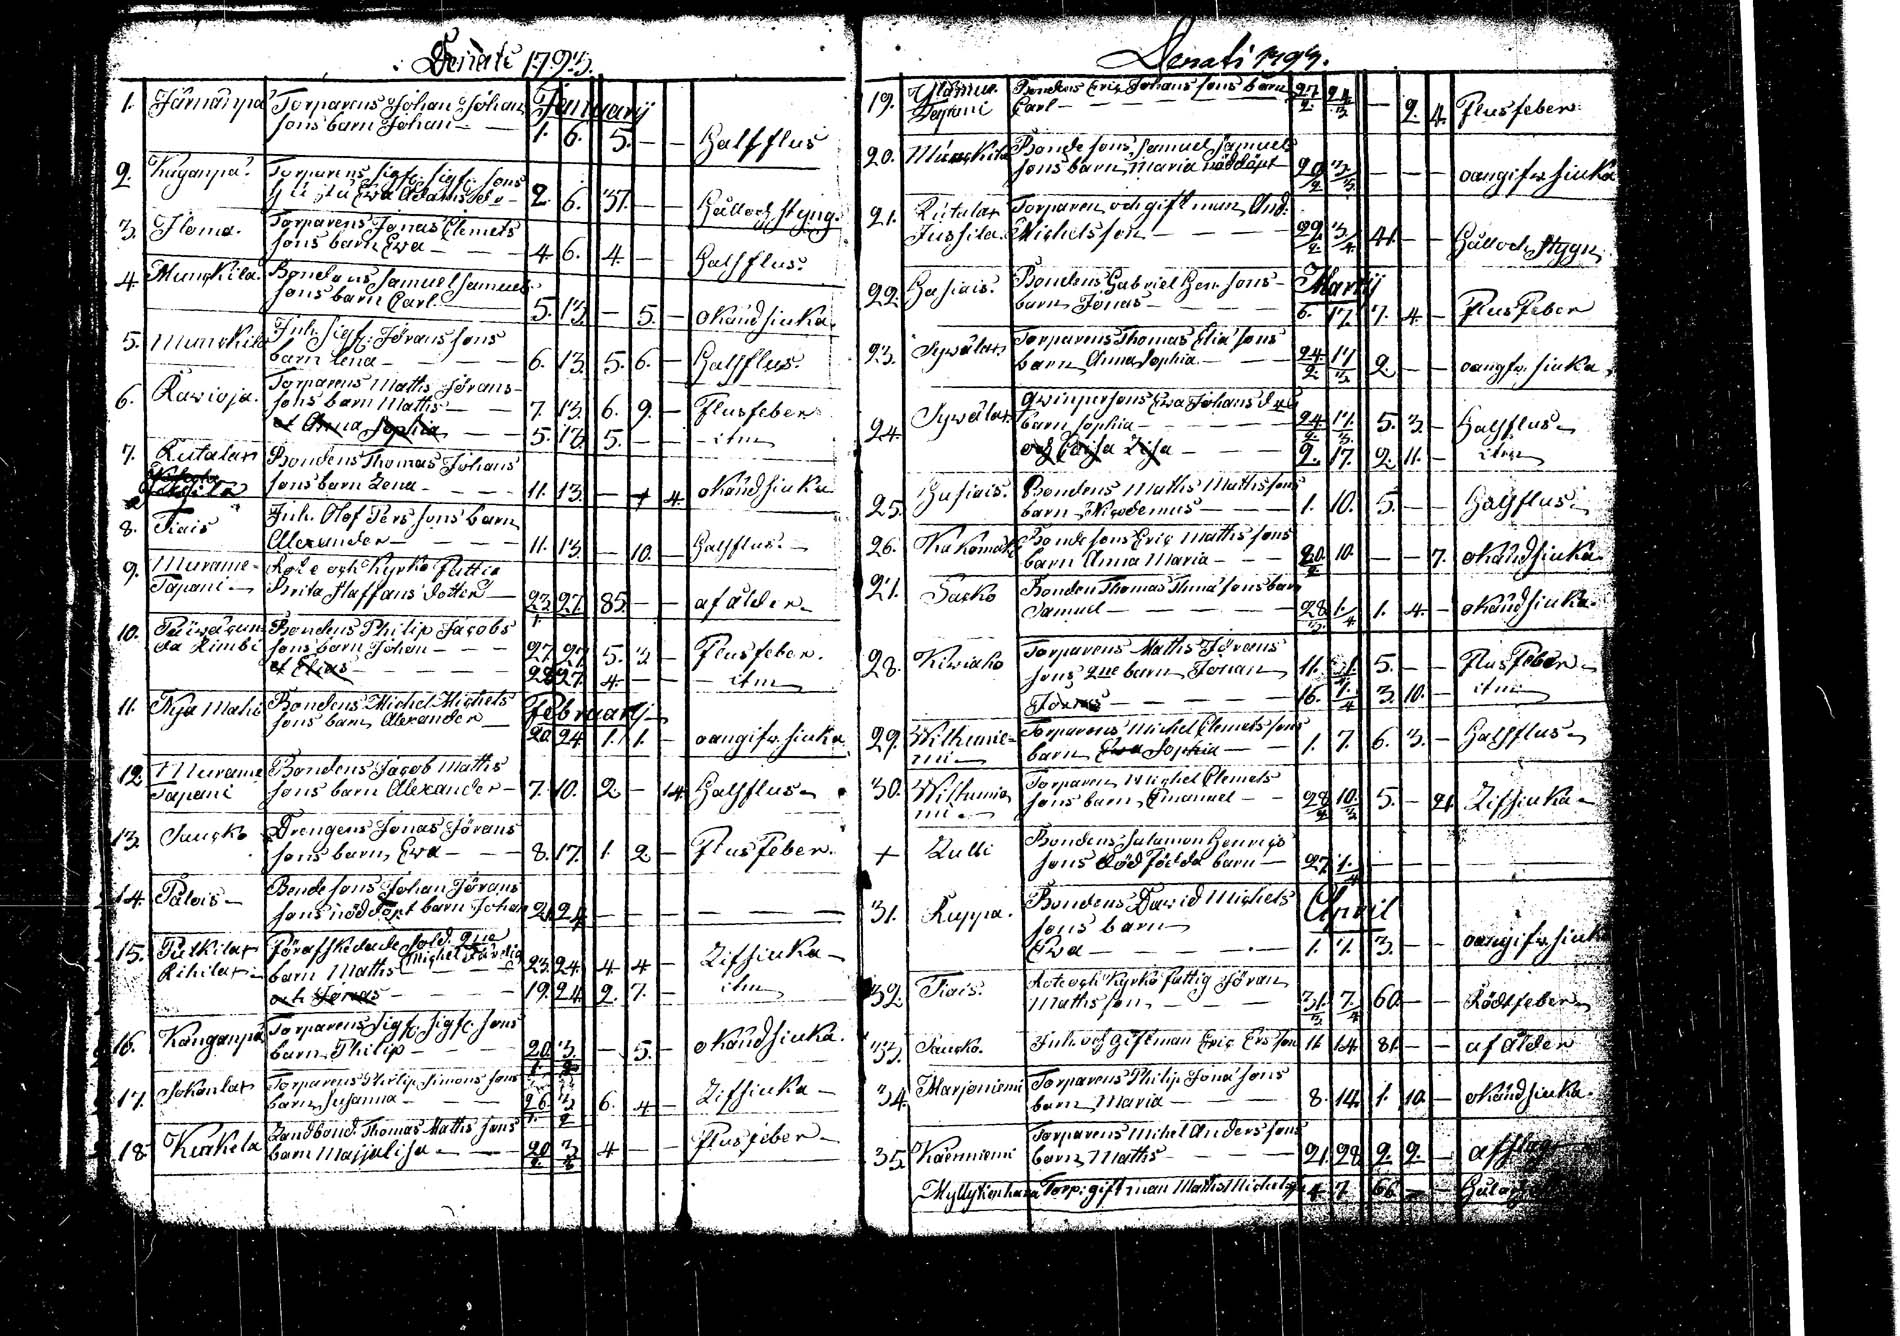 Denati 1793.
Januarij
1. Järnänpä Torparens Johan Johans
sons barn Johan — 1. 6. 5. — — Halfflus
2. Kåganpä. Torparens Sigfr. Sigfr. sons
Hustru Ewa Adams do — 2. 6. 37. — — Håll och Styng.
3. Iloma. Torparens Jonas Clemets
sons barn Ewa — 4. 6. 4. — — Halfflus.
4. Munckila. Bondens Samuel Samuels
sons barn Carl — 5. 13. — 5. — okänd siuka.
5. Munckila Inh. Sigf. Jörans sons
barn Lena — 6. 13. 5. 6. — Halfflus.
6. Rawioja. Torparens Maths Jörans
sons barn Maths — 7. 13. 6. 9. — Flusfeber
et Anna Sophia — 5. 13. 5. — — itm
7. Rutalax Bondens Thomas Johans
sons barn Lena — 11. 13. — + 4. okänd siuka
8. Tiais Inh. Olof Pers sons barn
Alexander — 11. 13. — 10. — Halfflus.
9. Murame Rote och Kyrko fattig
Tapani — Brita Staffans dotter — 23/1. 27. 85. — — af ålder
10. Bondens Philip Jacobs
sons barn Johan — 27. 27. 5. 3 — Flusfeber.
et Elias — 28 27. 4. — — itm
Februarij
11. Nyja Mahi Bondens Michel Michels
sons barn Alexander — 20. 24. 1. 1. — oangifv. siuka
12. Murame Bondens Jacob Maths
Tapani sons barn Alexander — 7. 10. 2 — 14. Halfflus
13. Saucko Drengens Jonas Jörans
sons barn Ewa — 8. 17. 1. 2 — Flusfeber.
14. Pälois — Bonde sons Johan Jörans
sons nöddöpt barn Johan 21. 24. — — — —
15. Pulkilax Förafskedade Sold. Michel Färdig 2ne
Rihilax — barn Maths — 23. 24. 4. 4 — Lifsiuka —
och Jonas — 19. 24. 2. 7. — itm
16. Kanganpä Torparens Sigfr. Sigfr. sons
barn Philip — 20/1. 3/2 — 5. — okänd siuka.
17. Jokonlax Torparens Philip Simons sons
barn Susanna — 26/1. 3/2 6. 4 — Lifsiuka —
18. Kurkela Landbond. Thomas Maths sons
barn Majalisa — 20/2. 3/3 4 — — Flusfeber —
Denati 1793.
19. Murame Bondens Eric Johans sons barn
Tapani Carl — 27/2. 24/3 — 2. 4. Flusfeber
20. Munckila Bonde sons Samuel Samuels
sons barn Maria nöddöpt 20/2 3/3 — — — oangifv. siuka
21. Rutalax Torparen och gift man And.
Jussila. Michelsson — 22/2. 3/4 41. — — Håll och Stygn
Martij
22. Hasiais. Bondens Gabriel Hen. sons
barn Jonas — 6. 17. 7. 4. — Flus Feber
23. Sywälax Torparens Thomas Elia sons
barn Anna Sophia — 24/2. 17/3 2. — — oangfv. siuka
24. Sywälax Qwinpersons Ewa Johans dotr
barn Sophia — 24/2. 17/3. 5. 3. — Halfflus
och Caisa Lisa — 2. 17. 2. 11. — itm
25. Hasiais. Bondens Maths Maths sons
barn Nicodemus — 1. 10. 5. — — Halfflus
26. Kukomäki Bonde sons Eric Maths sons
barn Anna Maria — 20/2. 10. — — 7. okänd siuka
27. Sacko Bonden Thomas Thma sons barn
Samuel — 28/3. 1/4 1. 4. — okänd siuka.
28. Kiwiaho Torparens Maths Jörans
sons 2ne barn Johan 11. 1/4 5. — — Flus Feber
Jonas — 16. 1/4 3. 10. — itm
29. Wilkunie- Torparens Michel Clemets sons
mi — barn Ewa Sophia — 1. 7. 6. 3. — Halfflus
30. Wilkunie Torparen Michel Clemets
mi — sons barn Emanuel — 28/2 10/3 5. — 21. Lifsiuka
+ Lulli Bondens Salamon Henrics
sons död född barn — 27. 1/4 — — — —
April
31. Ruppa. Bondens David Michels
sons barn
Ewa — 1. 7. 3. — — oangifv. siuk
32 Tiais. Rote och Kyrko fattig Jöran
Maths son — 31/3. 7/4 60. — — Rödfeber
33. Saucko. Inh. och giftman Eric Ers son 11 14. 81. — — af ålder
34. Marjoniemi Torparens Philip Jona sons
barn Maria — 8. 14. 1. 10. — okänd siuka.
35. Kärnniemi Torparens Mihel Anders sons
barn Maths — 21. 28. 2. 2. — af slag
Myllykonhara Torp. gift man Maths Michelsson 4. 7. 66